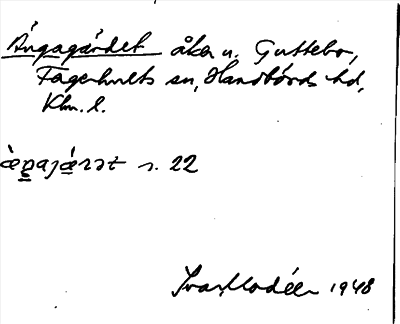 Ängagärdet åker u. Guttebo,
Fagerhults sn, Handbörds hd,
Klm. l.
s. 22
Ivar Modéer 1948